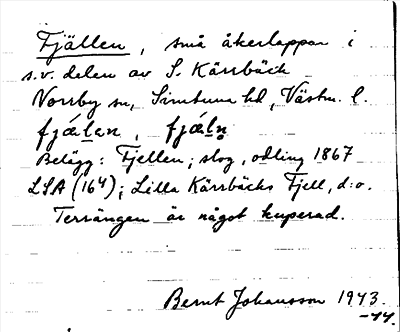 Fjällen, små åkerlappar i
s.v. delen av S. Kärrbäck
Norrby sn, Simtuna hd, Västm. l.
fjälen, fjäln
Belägg: Fjellen; skog, odling 1867
LSA (164); Lilla Kärrbäcks Fjell, d:o.
Terrängen är något kuperad.
Bernt Johansson 1943.
-44.